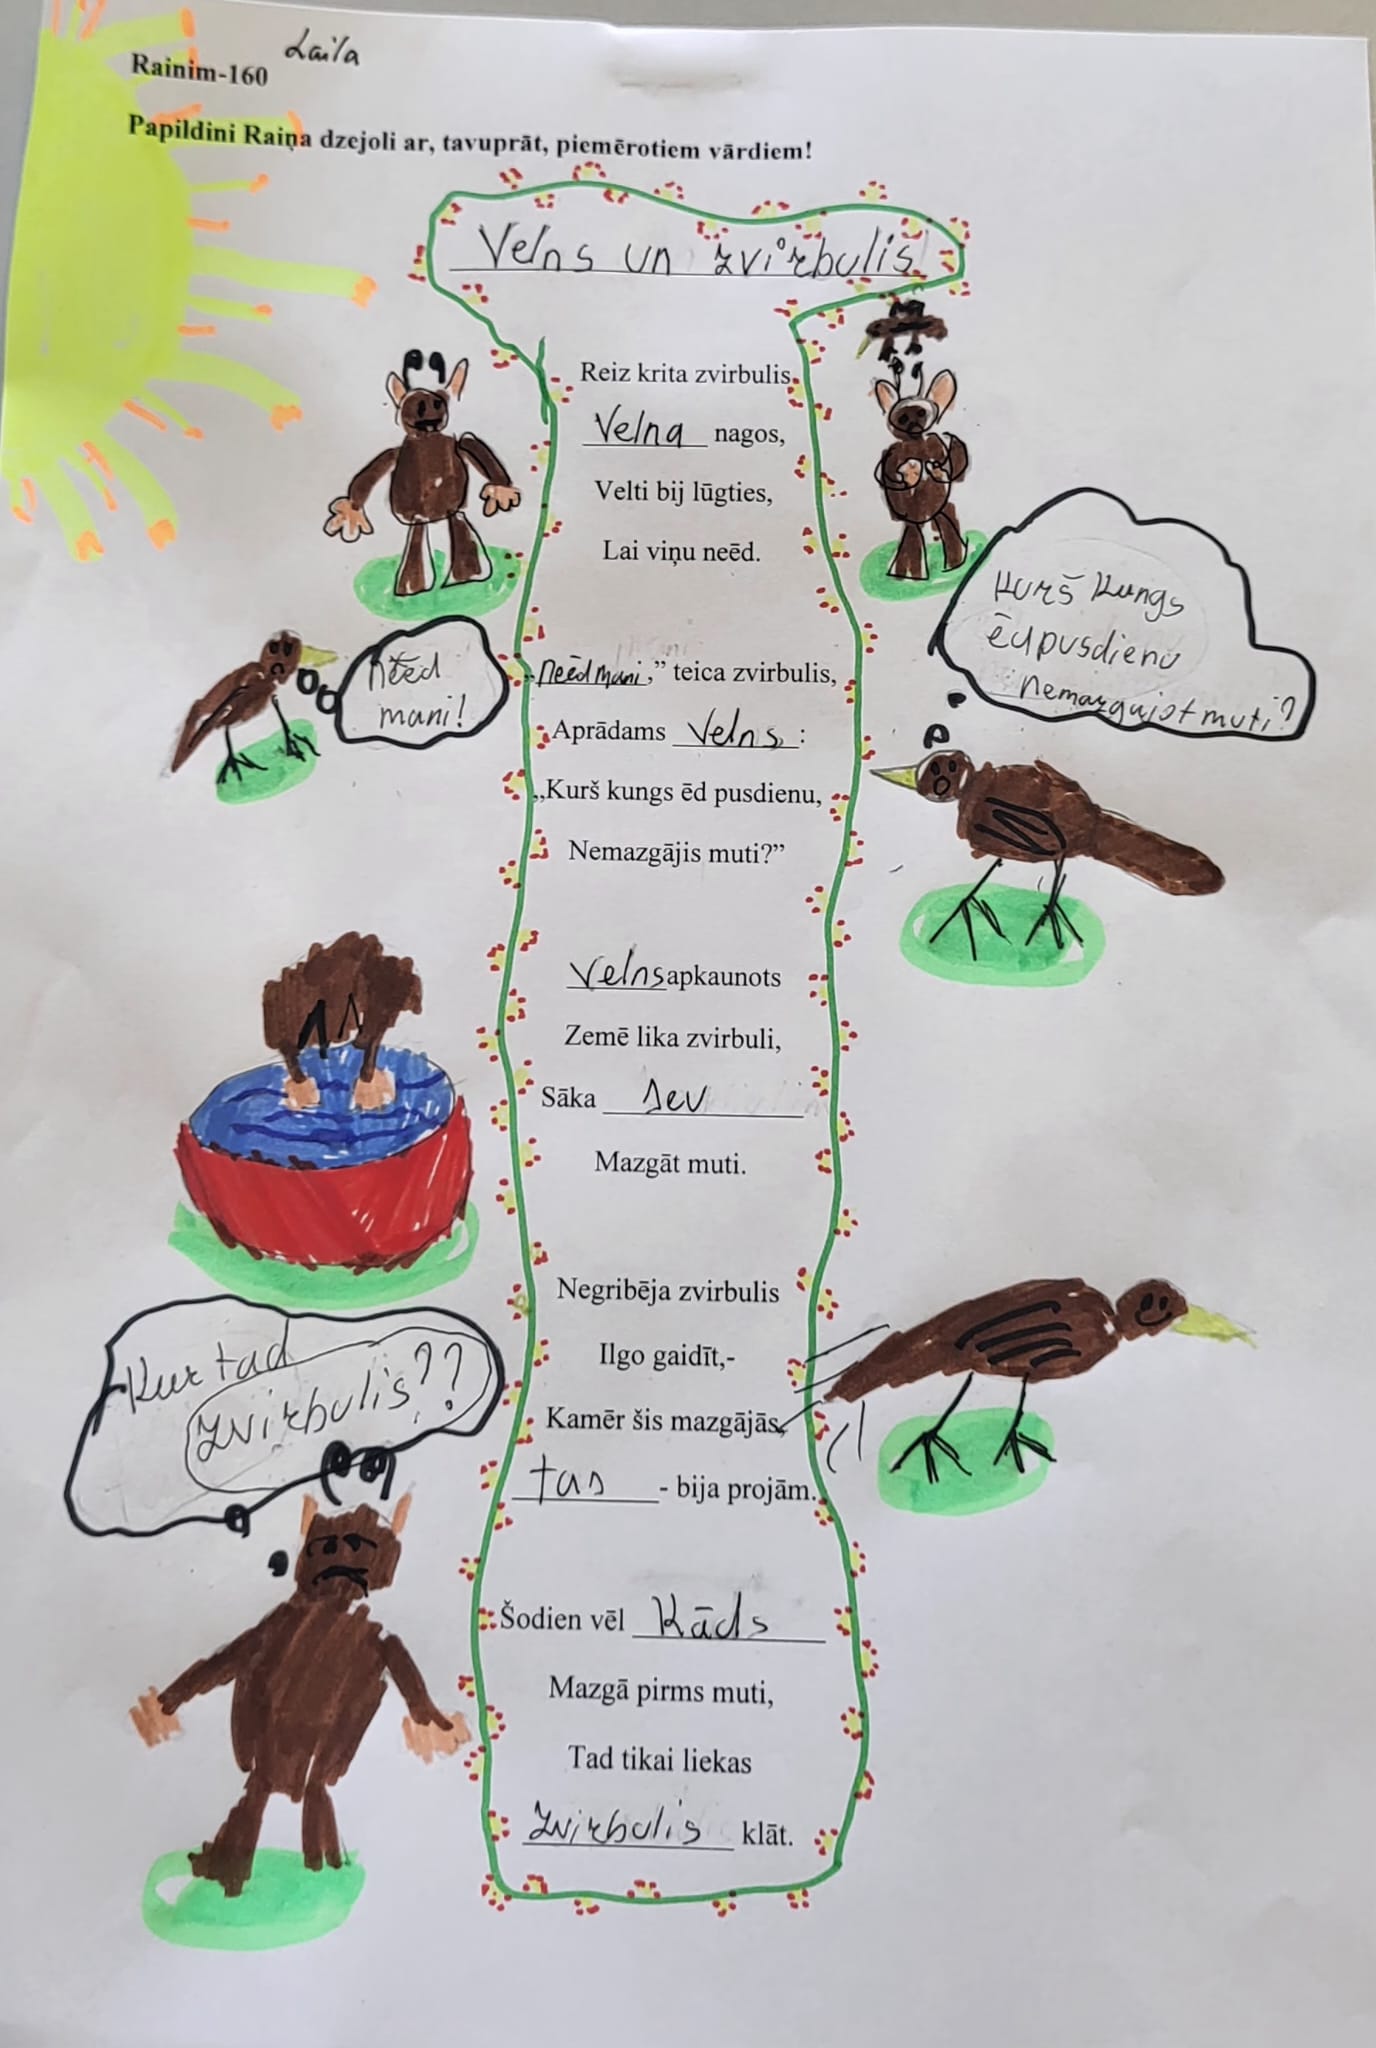 Laila
Rainim-160
Papildini Raiņa dzejoli ar, tavuprāt, piemērotiem vārdiem!
Velns un zvirbulis
Reiz krita zvirbulis
Velna nagos,
Velti bij lūgties,
Lai viņu neēd.
neēd
mani!
Kurš kungs
ēd pusdienu
nemazgājot muti?
„neēd mani,” teica zvirbulis,
Aprādams Velns:
„Kurš kungs ēd pusdienu,
Nemazgājis muti?”
Velns apkaunots
Zemē lika zvirbuli,
Sāka sev
Mazgāt muti.
Negribēja zvirbulis
Ilgo gaidīt,-
Kamēr šis mazgājās,
tas - bija projām.
Kur tad
zvirbulis??
Šodien vēl Kāds
Mazgā pirms muti,
Tad tikai liekas
Zvirbulis klāt.